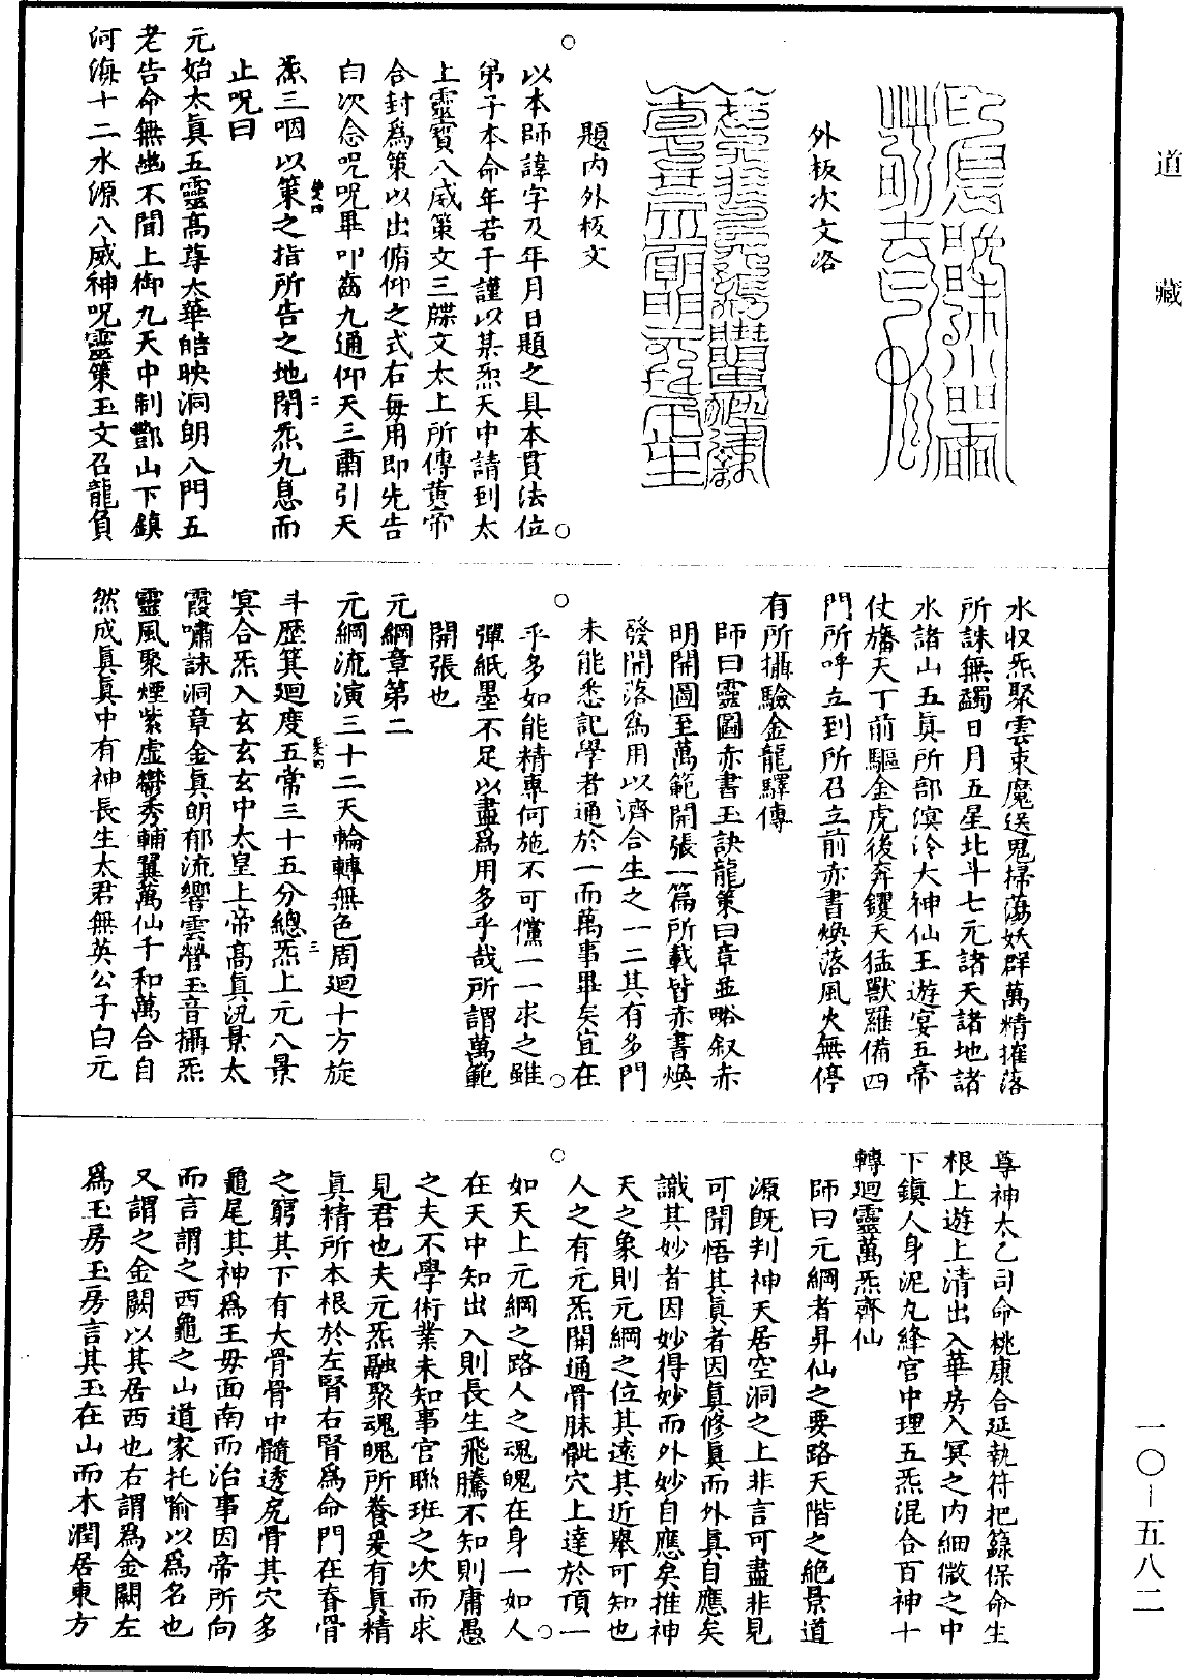 道藏
外板次文洛
題內外板文
以本師諱字及年月日題之具本貫法位
弟子本命年若干謹以某炁天中請到太
上靈寶八威策文三牒文太上所傳黃帝
合封爲策以出俯仰之式右每用即先告
白次念呪呪畢叩齒九通仰天三肅引天
炁三咽以策之指所告之地閉炁九息而
止呪曰
元始太眞五靈高尊太華皓映洞朗八門五
老告命無幽不聞上御九天中制酆山下鎮
河海十二水源八威神呪靈策玉文召龍負
水収炁聚雲束魔送鬼掃蕩妖群萬精摧落
所誅無蠲日月五星北斗七元諸天諸地諸
水諸山五眞所部溟泠大神仙王遊宴五帝
仗旛天丁前驅金虎後奔钁天猛獸羅備四
門所呼立到所召立前赤書煥落風火無停
有所攝驗金龍驛傳
師曰靈圖赤書玉訣龍策曰章並略叙赤
明開圖至萬範開張一篇所載皆赤書煥
發開落爲用以濟合生之一二其有多門
未能悉記學者通於一而萬事畢矣宜在
乎多如能精專何施不可儻一一求之雖
彈紙墨不足以盡爲用多乎哉所謂萬範
開張也
元綱章第二
元綱流演三十二天輪轉無色周廻十方旋
斗歷箕廻度五常三十五分總炁上元八景
冥合炁入玄玄玄中太皇上帝高眞汎景太
霞嘯詠洞章金眞朗郁流響雲營玉音攝炁
靈風聚煙紫虛鬱秀輔翼萬仙千和萬合自
然成眞眞中有神長生太君無英公子白元
尊神太乙司命桃康合延執符把籙保命生
根上遊上清出入華房入冥之內細微之中
下鎮人身泥丸絳宮中理五炁混合百神十
轉廻靈萬炁齊仙
師曰元綱者昇仙之要路天階之絕景道
源旣判神天居空洞之上非言可盡非見
可聞悟其眞者因眞修眞而外眞自應矣
識其妙者因妙得妙而外妙自應矣推神
天之象則元綱之位其遠其近舉可知也
人之有元炁開通骨脉骴穴上達於頂一
如天上元綱之路人之魂魄在身一如人
在天中知出入則長生飛騰不知則庸愚
之夫不學術業未知事官聯班之次而求
見君也夫元炁融聚魂魄所養爰有眞精
眞精所本根於左腎右腎爲命門在脊骨
之窮其下有大骨骨中髓透尻骨其穴多
龜尾其神爲王毋面南而治事因帝所向
而言謂之西龜之山道家托喻以爲名也
又謂之金闕以其居西也右謂爲金闕左
爲玉房玉房言其玉在山而木潤居東方
一〇—五八二